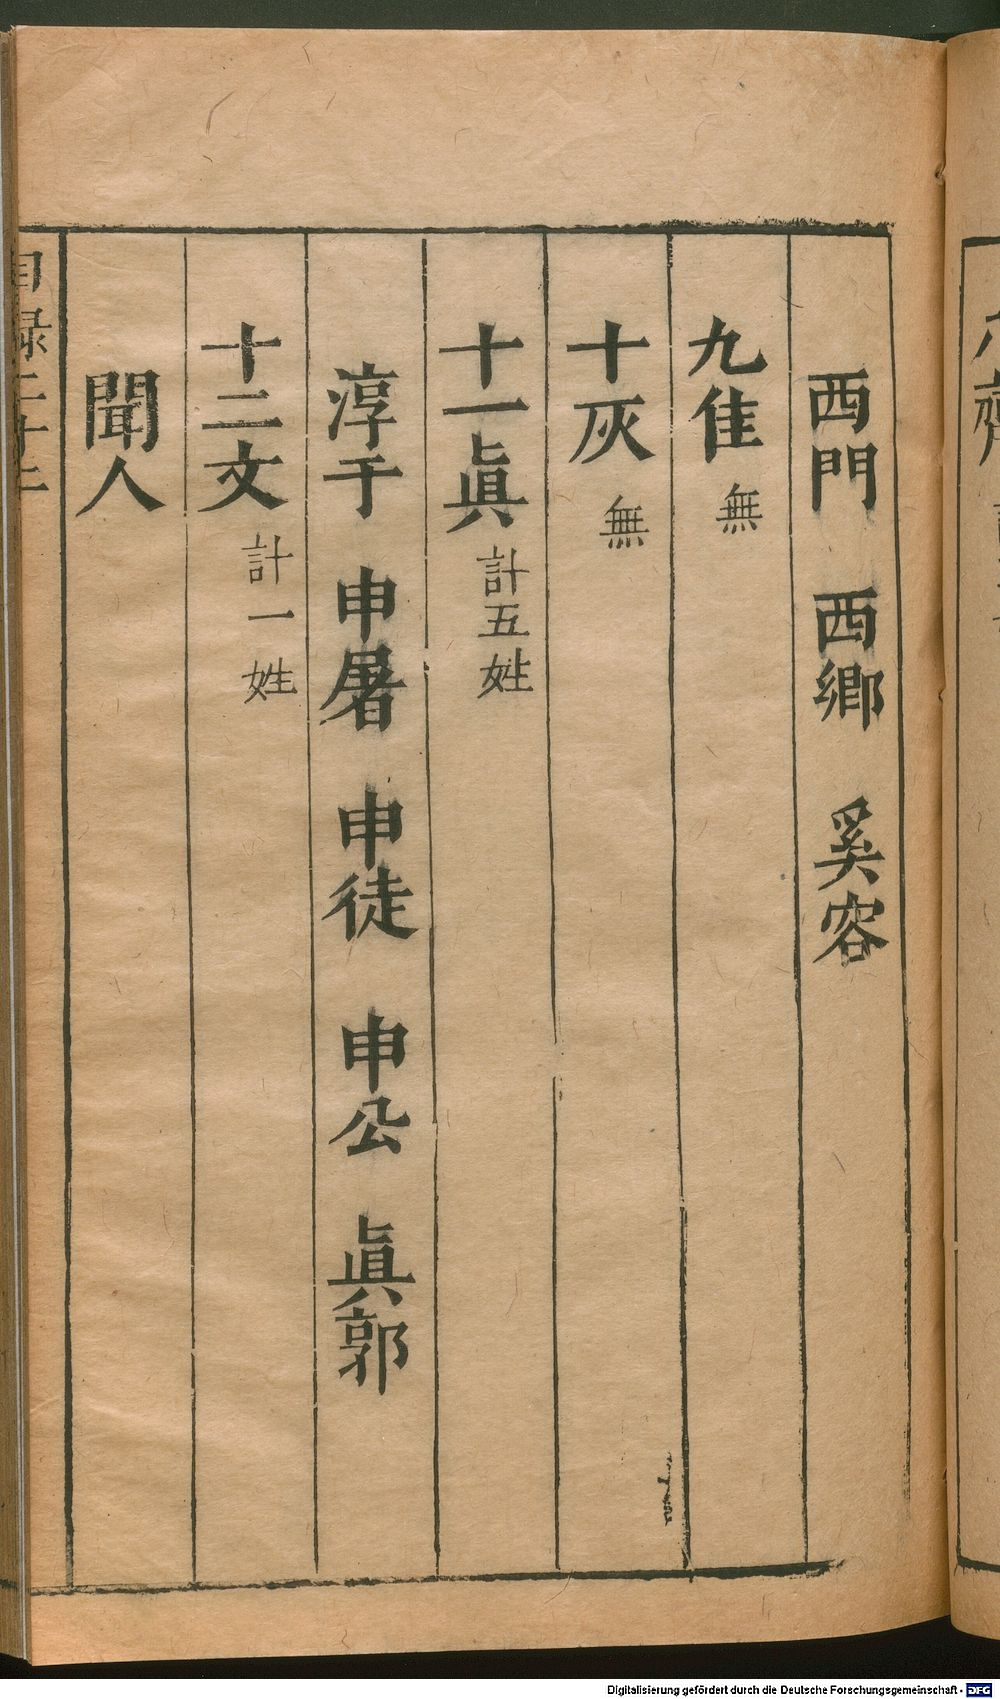 西門 西鄉 奚容
九佳 無
十灰 無
十一眞 計五姓
淳于 申屠 申徒 申公 眞郭
十二文 計一姓
聞人
目録二十二
八齊
Digitalisierung gefördert durch die Deutsche Forschungsgemeinschaft - DFG